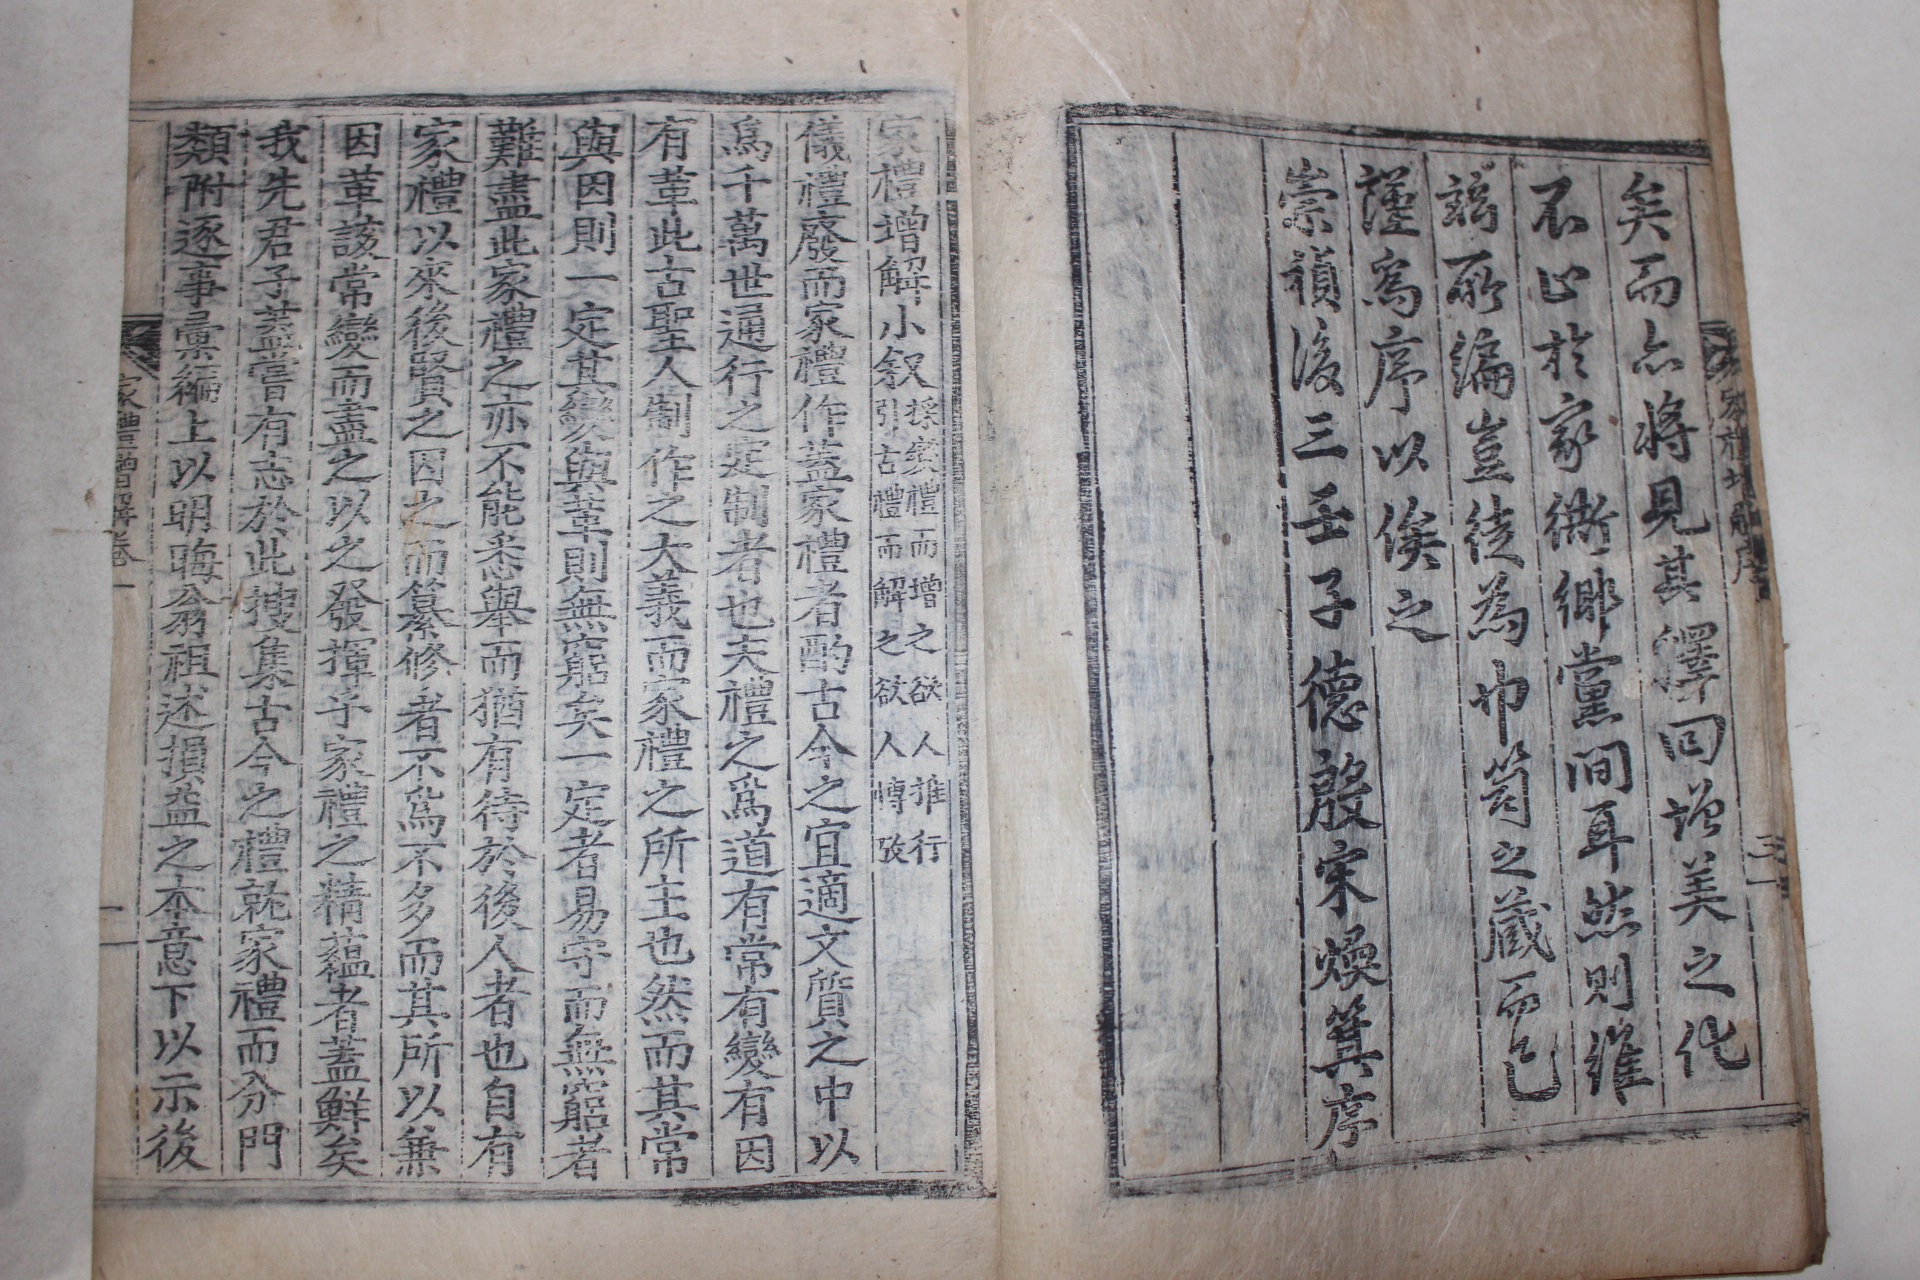 矣而亦將見其繹同增美之化
不止於家衖鄉黨間耳然則維
鎬所編豈徒為巾笥之藏而已
謹為序以俟之
崇禎後三壬子德殷宋煥箕序
家禮增解序
三
家禮增解小叙
採家禮而增之欲人推行
引古禮而解之欲人博攷
儀禮廢而家禮作蓋家禮者酌古今之宜適文質之中以
爲千萬世通行之定制者也夫禮之爲道有常有變有因
有革此古聖人制作之大義而家禮之所主也然而其常
與因則一定其變與革則無窮矣一定者易守而無窮者
難盡此家禮之亦不能悉舉而猶有待於後人者也自有
家禮以來後賢之因之而纂修者不爲不多而其所以兼
因革該常變而盡之以之發揮乎家禮之精蘊者蓋鮮矣
我先君子蓋嘗有志於此搜集古今之禮就家禮而分門
類附逐事彙編上以明晦翁祖述損益之本意下以示後
家禮增解卷一
一